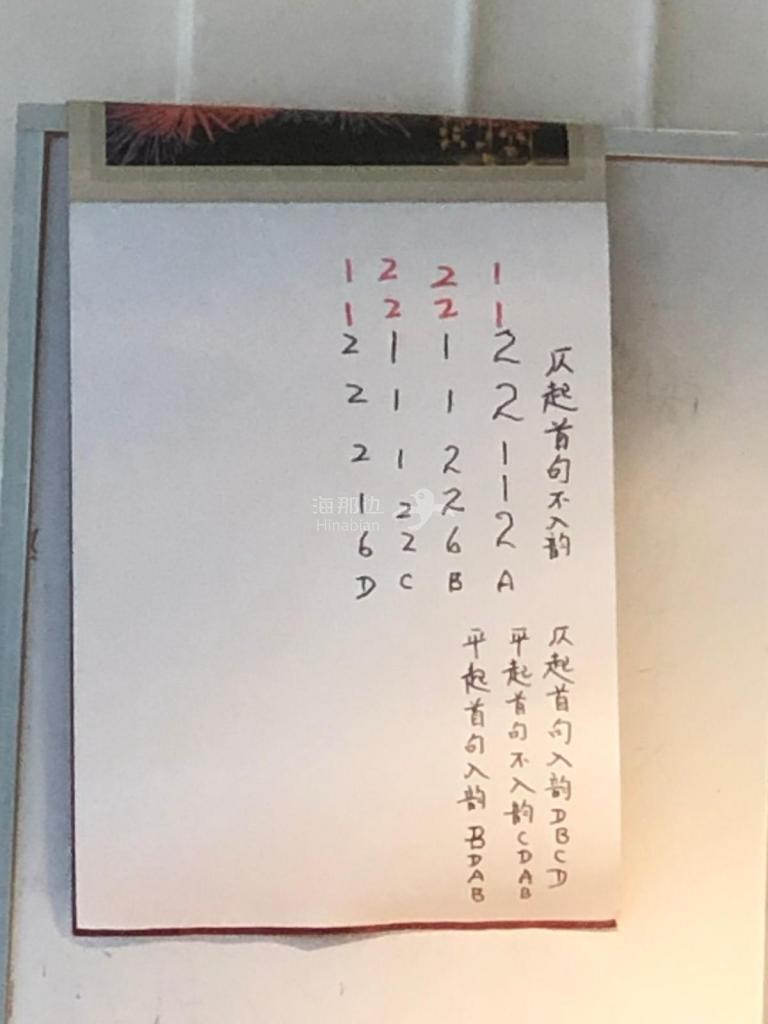 仄起首句不入韵
1122112A
2211226B
2211122C
1122216D
仄起首句入韵DBCD
平起首句不入韵CDAB
平起首句入韵BDAB
海那边
Hinabian